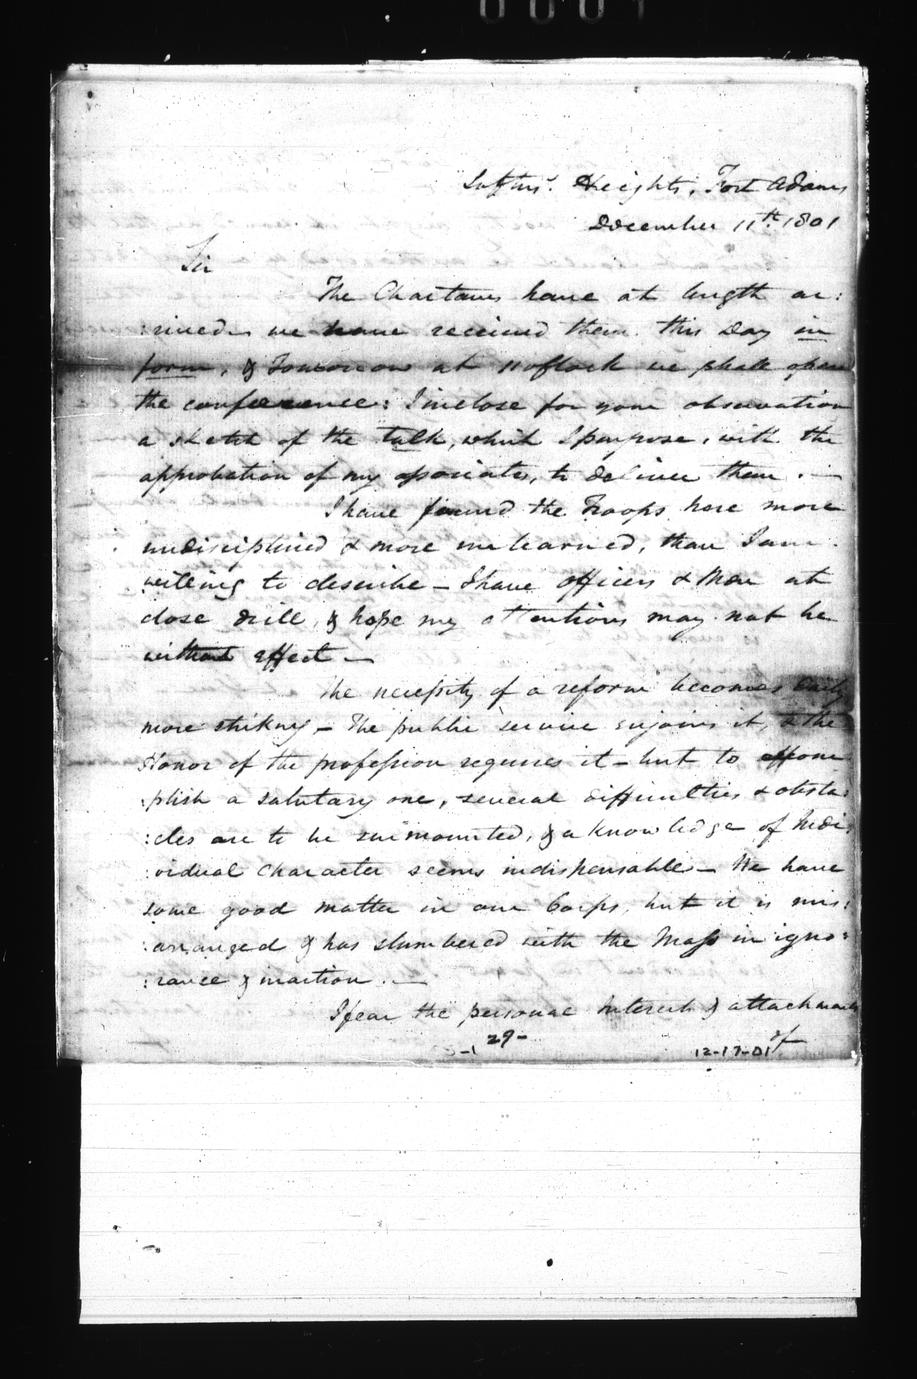 0001
Loftus's Heights, Fort Adams
December 11th 1801
Sir
The Choctaws have at length ar:
:rived we have received them this Day in
form, & Tomorrow at 11 oClock we shall open
the conference: I inclose for your observation
a sketch of the talk, which I purpose, with the
approbation of my associates, to deliver them. —
I have found the Troops here more
undisciplined & more unlearned, than I am
willing to describe — I have officers & Men at
close drill, & hope my attentions may not be
without effect —
The necessity of a reform becomes daily
more striking — The public service enjoins it, & the
Honor of the profession requires it — but to accom
:plish a salutary one, several difficulties & obsta:
:cles are to be surmounted, & a knowledge of Indi:
:vidual character seems indispensable — We have
some good matter in our Corps, but it is mis:
:arranged & has slumbered with the Mass in igno:
:rance & inaction. —
I fear the personal Interests & attachments
of
29-
12-17-01